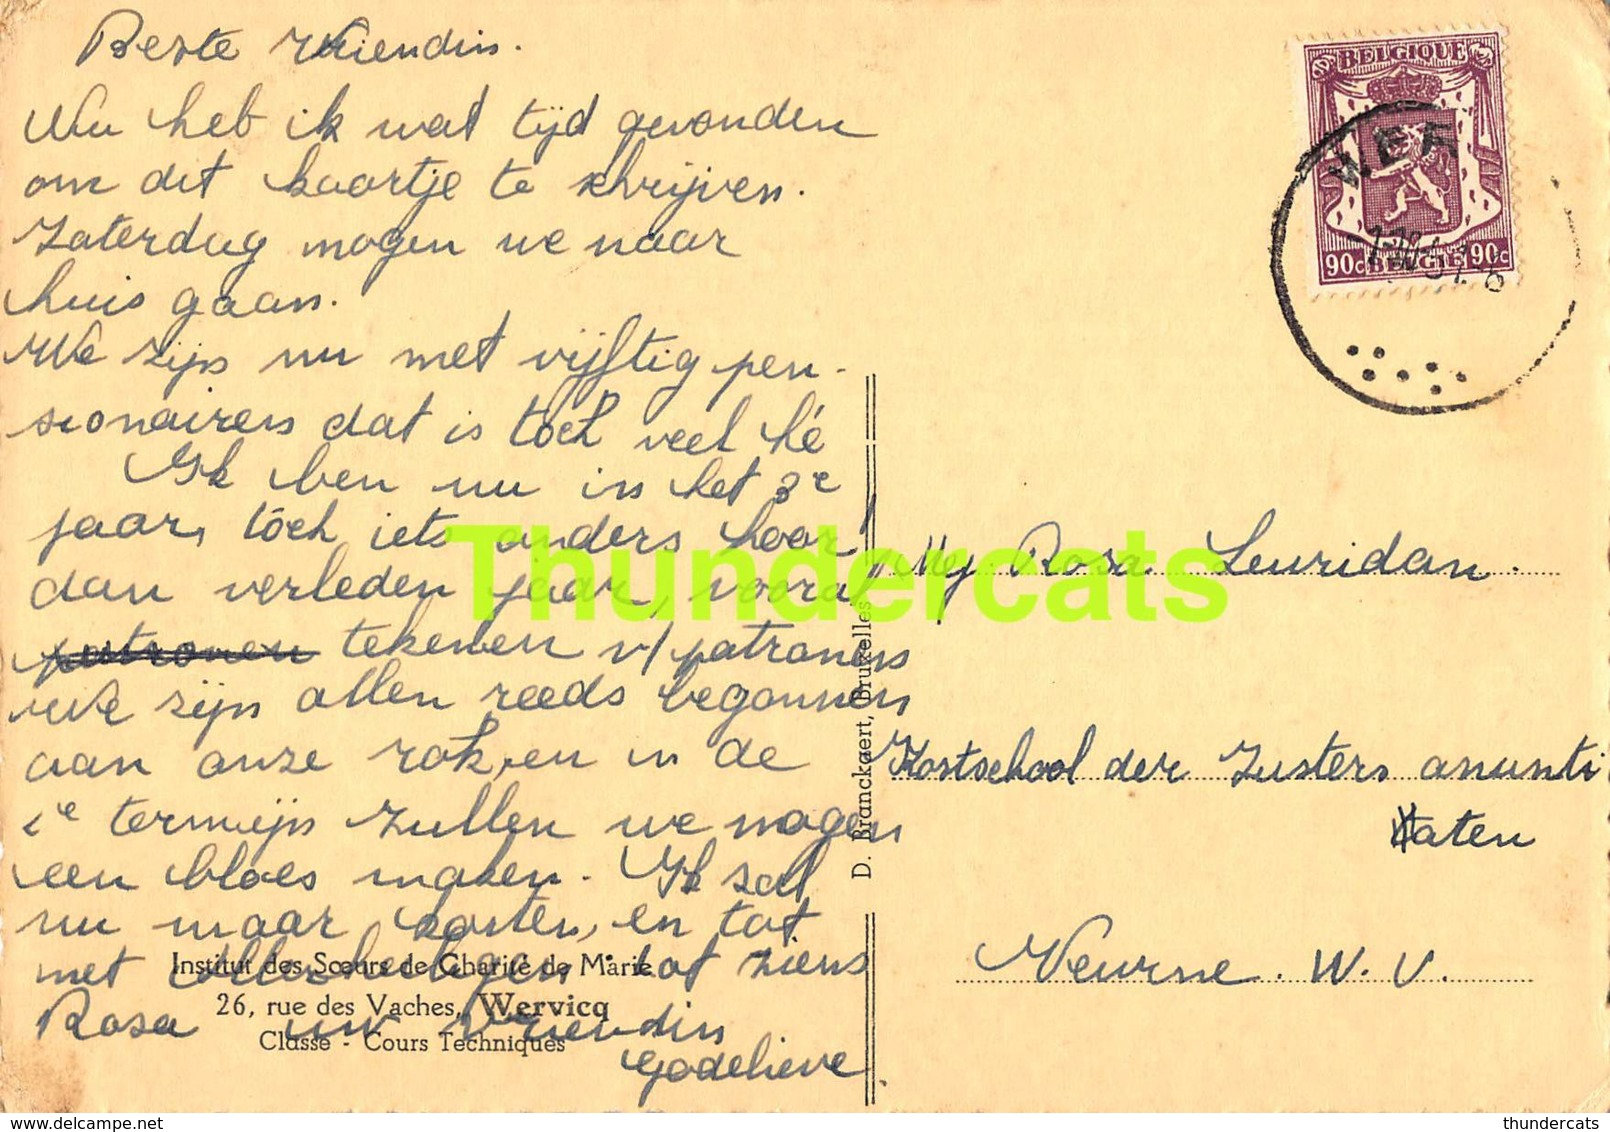 Beste vriendin.
Nu heb ik wat tijd gevonden
om dit kaartje te schrijven.
Zaterdag mogen we naar
huis gaan.
We zijn nu met vijftig pen-
sionairen dat is toch veel hé
Ik ben nu in het 3e
jaar, tóch iets anders hoor!
dan verleden jaar, vooral
patronen tekenen v/ patronen
We zijn allen reeds begonnen
aan onze rok, en in de
2e termijn zullen we mogen
een bloes maken. Ik zal
nu maar korten, en tot
met Allerheiligen. tot ziens
Rosa uw vriendin
Godelieve.
Institut des Sœurs de Charité de Marie
26, rue des Vaches, Wervicq
Classe - Cours Techniques
D. Branckaert, Bruxelles
BELGIQUE
90c BELGIË 90c
WER
Mej Rosa Leuridan.
Kostschool der Zusters anunti
aten
Veurne. W. V.
Thundercats
thundercats
delcampe.net